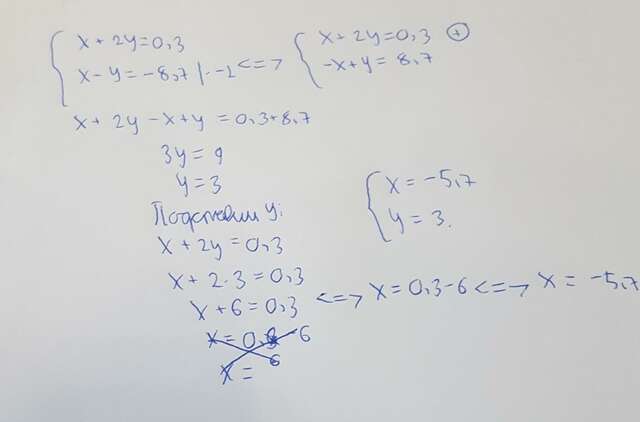 x + 2y = 0,3
x - y = -8,7 | · -1 <=>
x + 2y = 0,3 (+)
-x + y = 8,7
x + 2y - x + y = 0,3 + 8,7
3y = 9
y = 3
Подставим y:
x + 2y = 0,3
x + 2 · 3 = 0,3
x + 6 = 0,3 <=> x = 0,3 - 6 <=> x = -5,7
x = -5,7
y = 3.